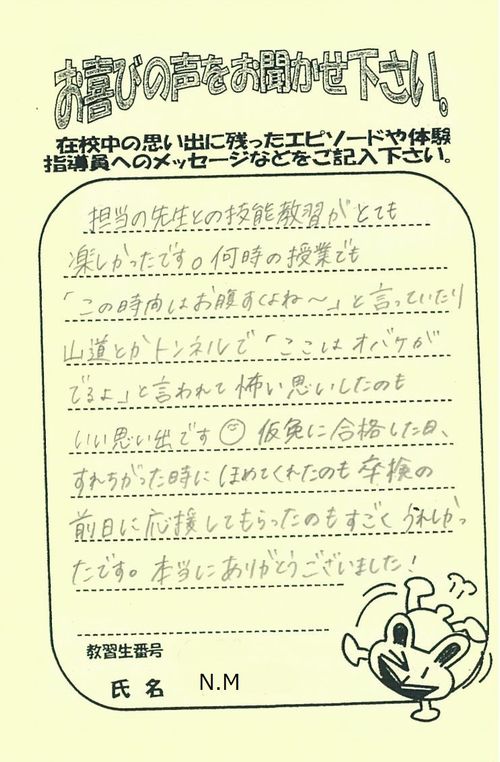 お喜びの声をお聞かせ下さい。
在校中の思い出に残ったエピソードや体験
指導員へのメッセージなどをご記入下さい。
担当の先生との技能教習がとても
楽しかったです。何時の授業でも
「この時間はお腹すくよね〜」と言っていたり
山道とかトンネルで「ここはオバケが
でるよ」と言われて怖い思いしたのも
いい思い出です☺ 仮免に合格した日、
すれちがった時にほめてくれたのも卒検の
前日に応援してもらったのもすごくうれしかっ
たです。本当にありがとうございました！
教習生番号
氏名 N.M